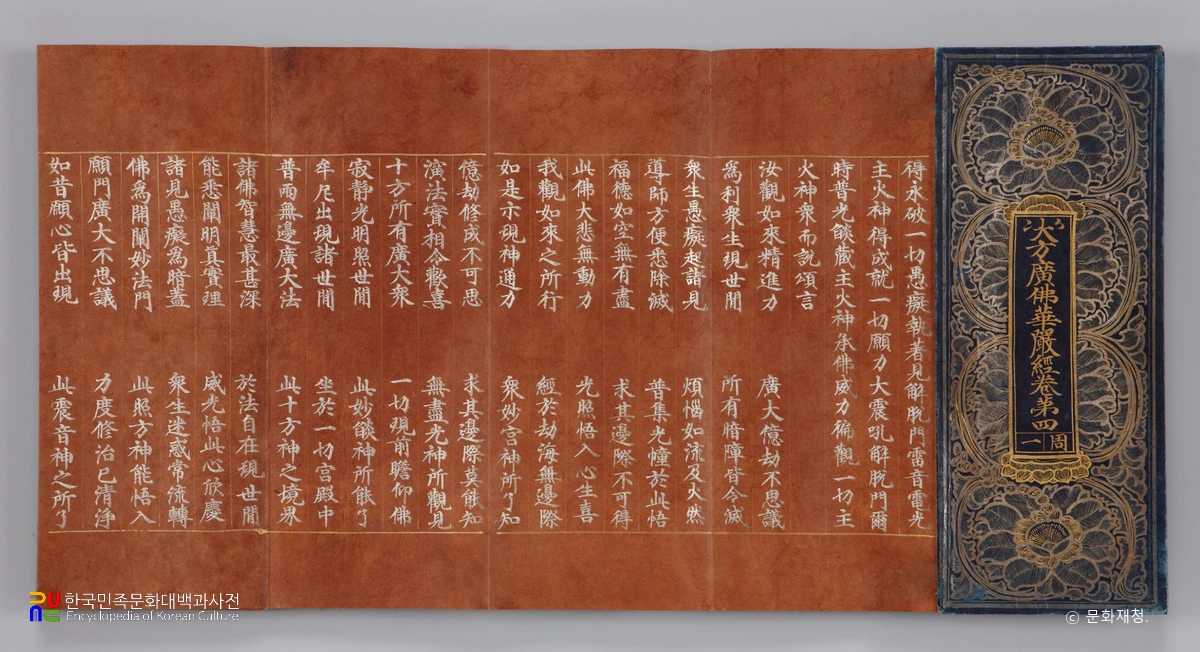 大方廣佛華嚴經卷第四
周一
得永破一切愚癡執著見解脫門雷音電光
主火神得成就一切願力大震吼解脫門爾
時普光燄藏主火神承佛威力徧觀一切主
火神衆而說頌言
汝觀如來精進力 廣大億劫不思議
爲利衆生現世間 所有暗障皆令滅
衆生愚癡起諸見 煩惱如流及火然
導師方便悉除滅 普集光幢於此悟
福德如空無有盡 求其邊際不可得
此佛大悲無動力 光照悟入心生喜
我觀如來之所行 經於劫海無邊際
如是示現神通力 衆妙宮神所了知
億劫修成不可思 求其邊際莫能知
演法實相令歡喜 無盡光神所觀見
十方所有廣大衆 一切現前瞻仰佛
寂靜光明照世間 此妙燄神所能了
牟尼出現諸世間 坐於一切宮殿中
普雨無邊廣大法 此十方神之境界
諸佛智慧最甚深 於法自在現世間
能悉闡明真實理 威光悟此心欣慶
諸見愚癡爲暗蓋 衆生迷惑常流轉
佛爲開闡妙法門 此照方神能悟入
願門廣大不思議 力度修治已清淨
如昔願心皆出現 此震音神之所了
한국민족문화대백과사전
Encyclopedia of Korean Culture
ⓒ 문화재청.